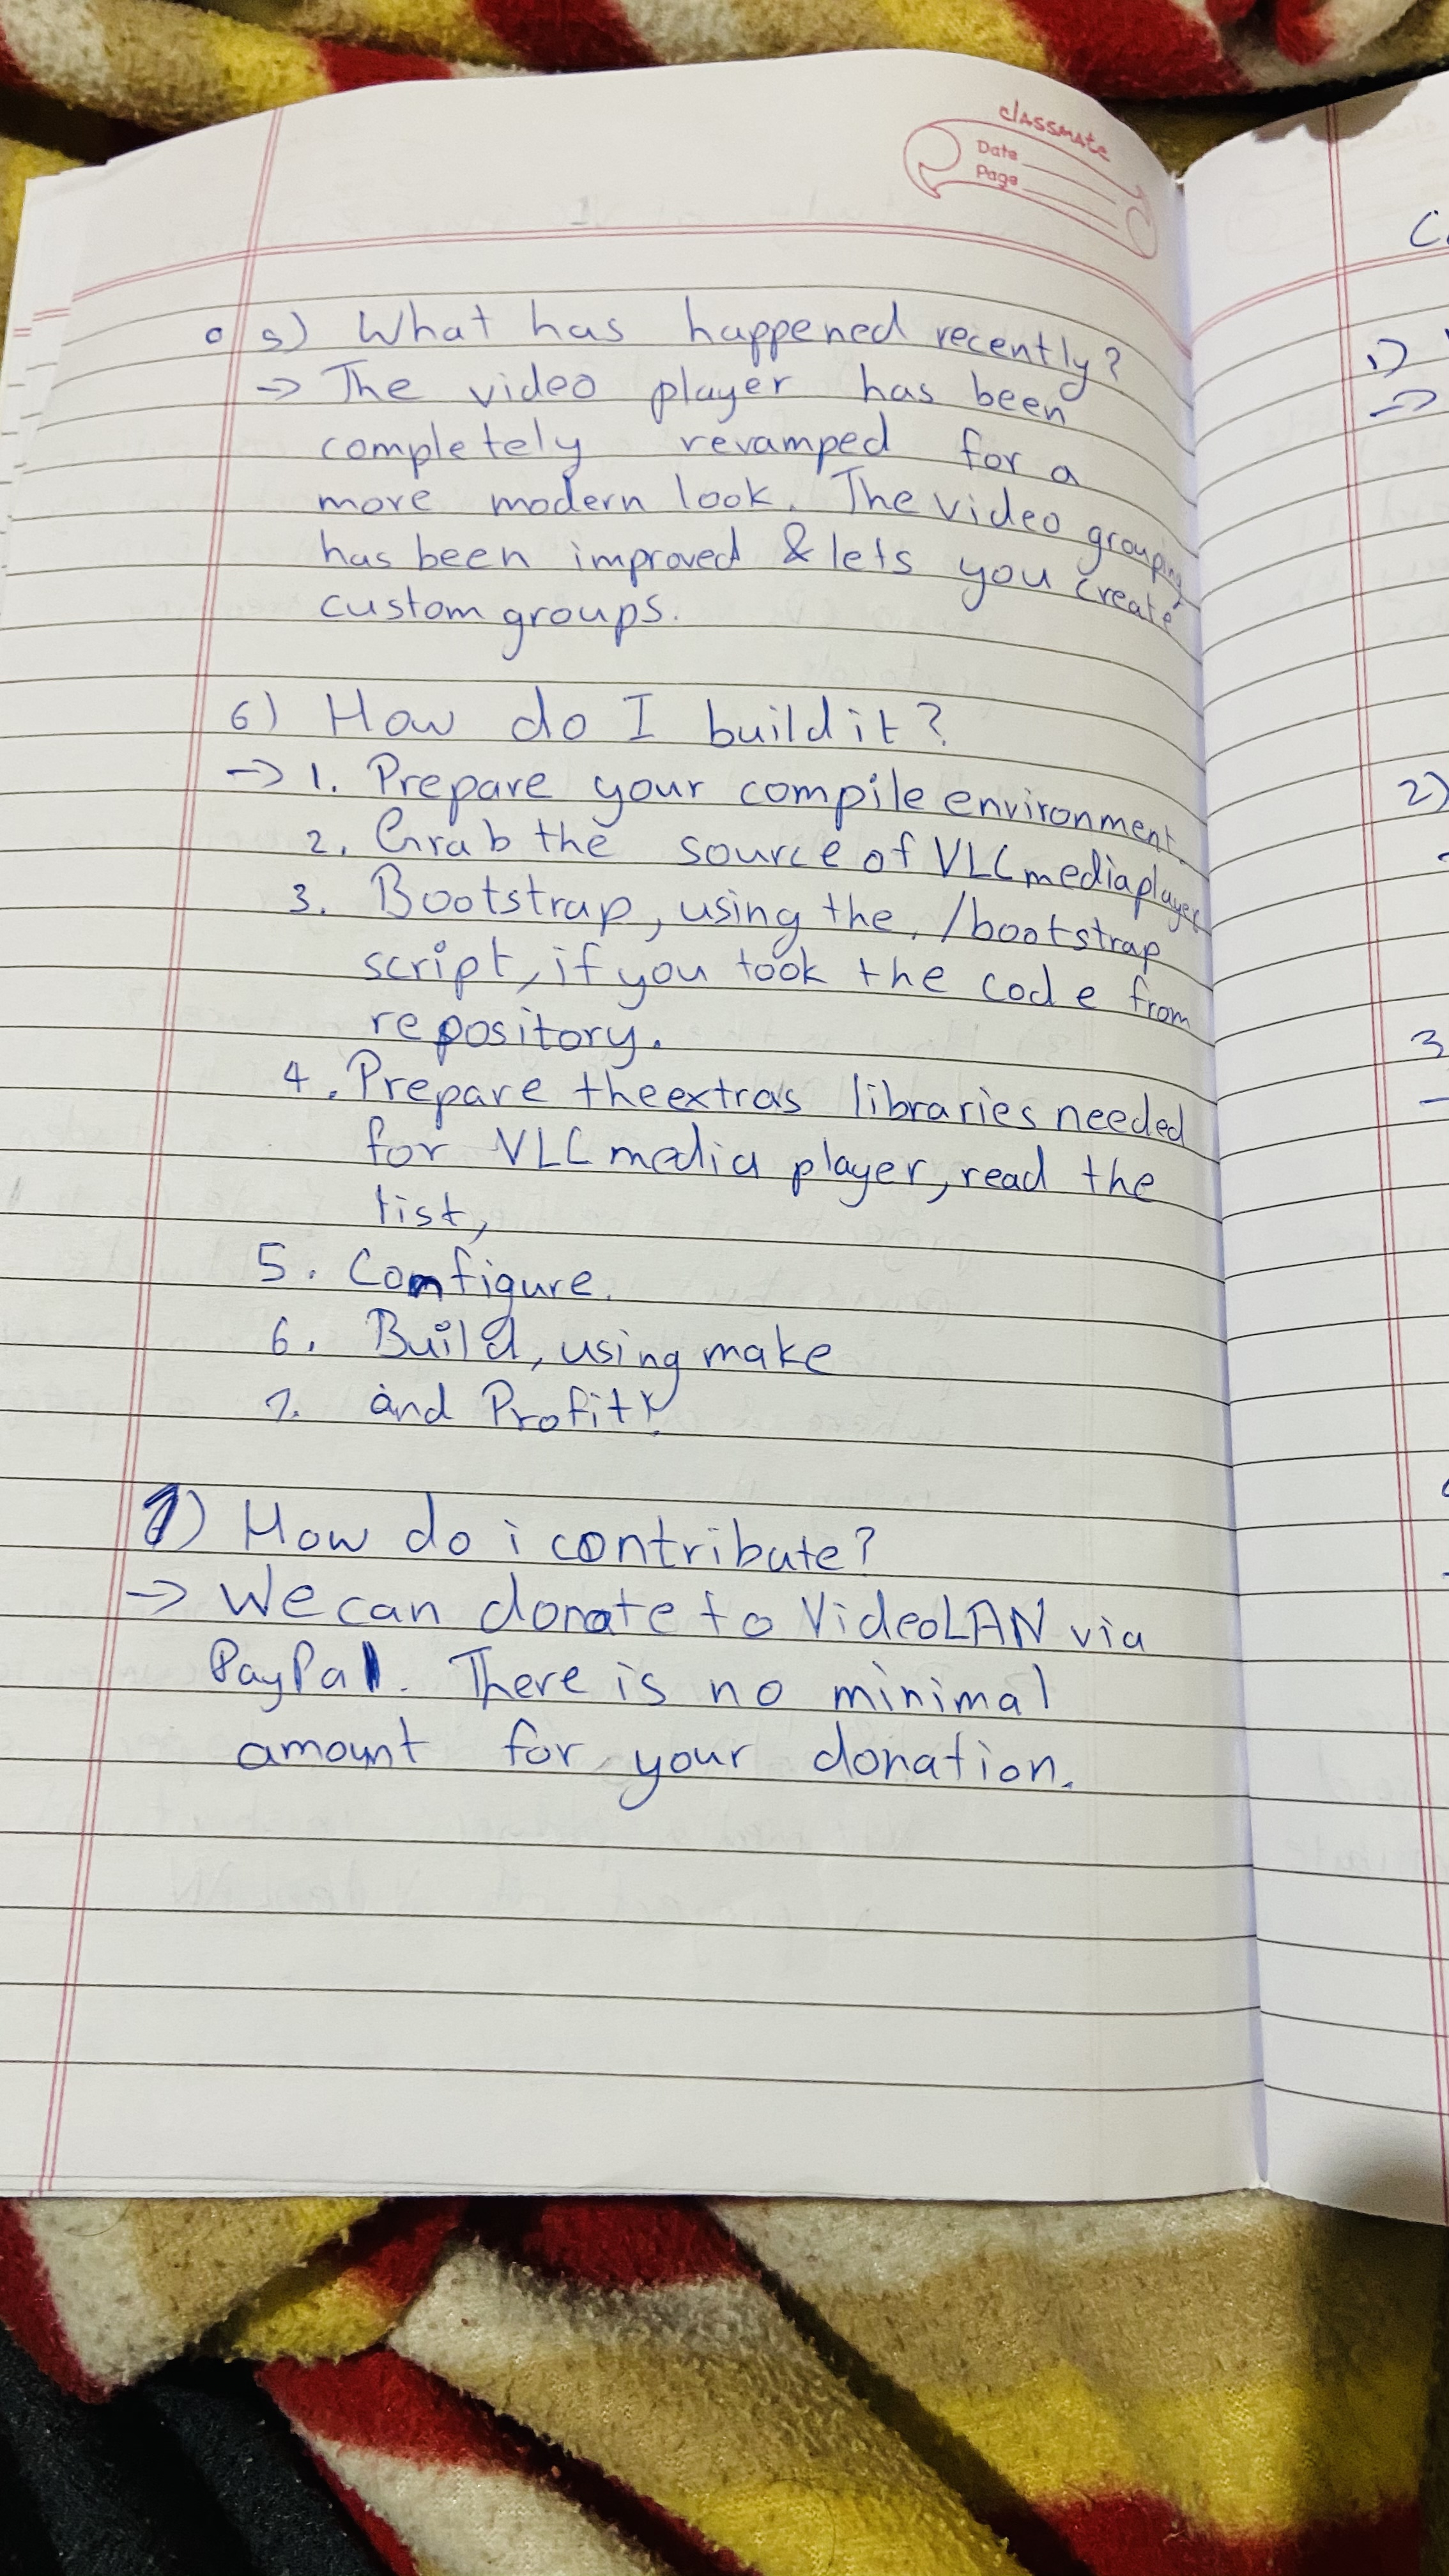 classmate
Date
Page
5) What has happened recently?
→ The video player has been
completely revamped for a
more modern look. The video grouping
has been improved & lets you create
custom groups.
6) How do I build it?
→ 1. Prepare your compile environment.
2. Grab the source of VLC mediaplayer
3. Bootstrap, using the ./bootstrap
script, if you took the code from
repository.
4. Prepare the extras libraries needed
for VLC media player, read the
list,
5. Configure.
6. Build, using make
7. and Profit!
7) How do i contribute?
→ We can donate to VideoLAN via
PayPal. There is no minimal
amount for your donation.
1)
→
2)
3